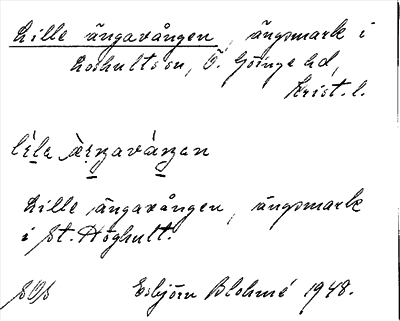 Lille ängavången, ängsmark i
Loshults sn, Ö. Göinge hd,
Krist. l.
Lille ängavången, ängsmark
i St. Höghult.
Esbjörn Blohmé 1948.